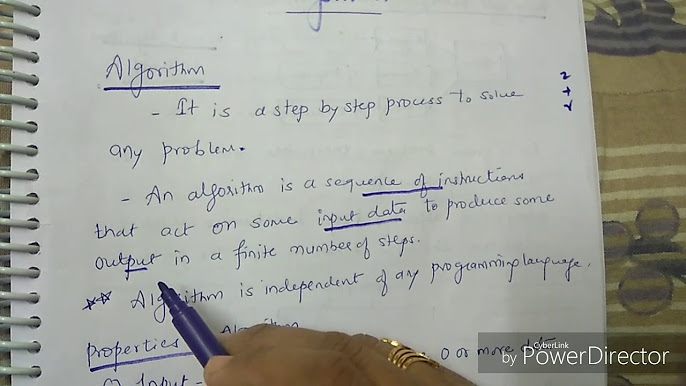 Algorithm
- It is a step by step process to solve
any problem.
- An algorithm is a sequence of instructions
that act on some input data to produce some
output in a finite number of steps.
** Algorithm is independent of any programming language.
Properties Algorithm
Input - 0 or more data
2
+
2
CyberLink
by PowerDirector